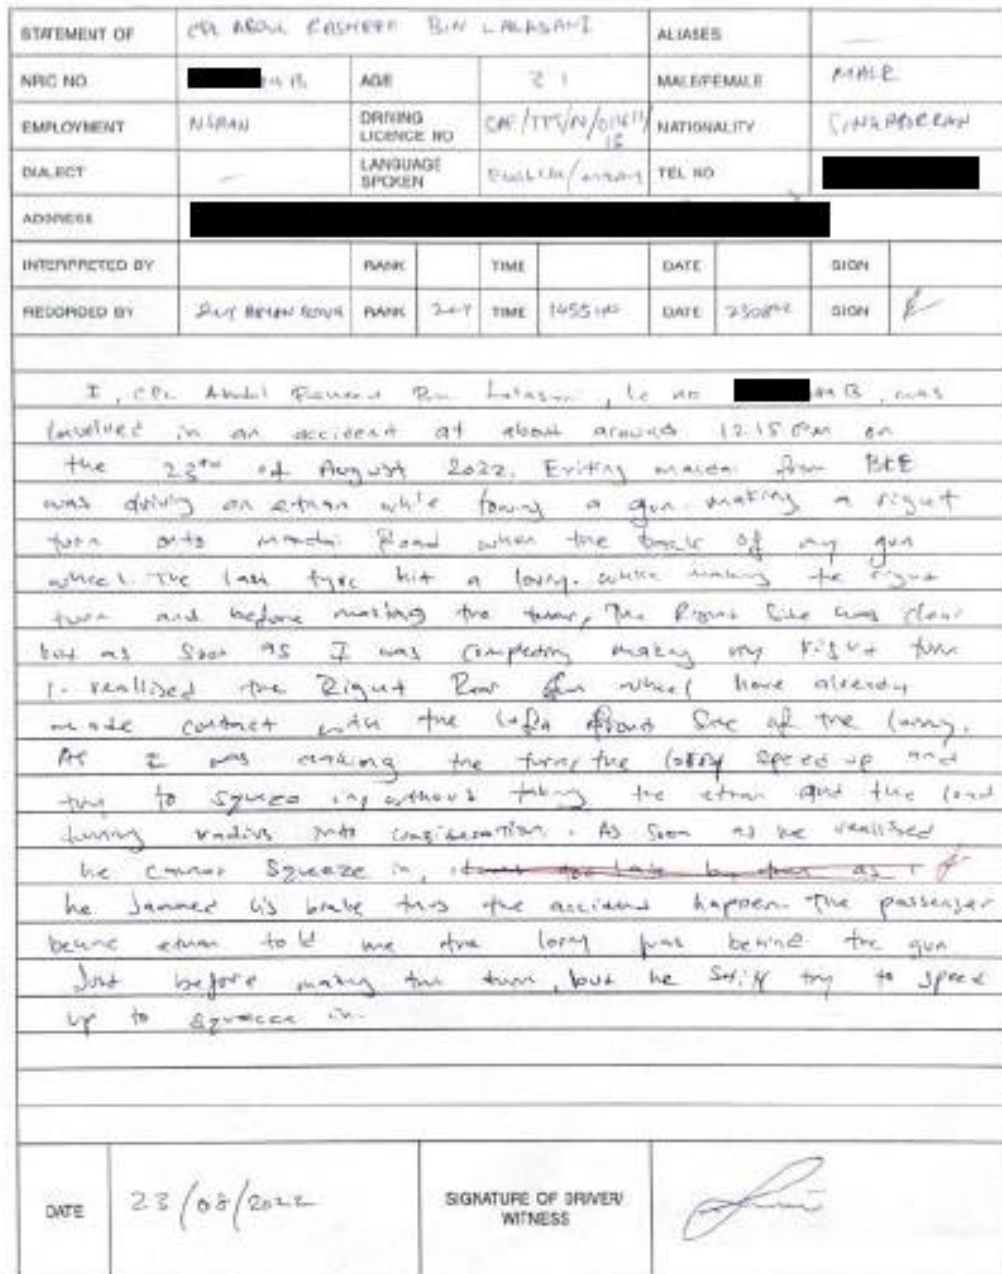 STATEMENT OF CPL ABDUL RASHEED BIN LALASANI ALIASES —
NRIC NO. B AGE 21 MALE/FEMALE MALE
EMPLOYMENT NSMAN DRIVING LICENCE NO NATIONALITY SINGAPOREAN
DIALECT — LANGUAGE SPOKEN ENGLISH/ TEL NO
ADDRESS
INTERPRETED BY RANK TIME DATE SIGN
RECORDED BY RANK TIME 1455 HRS DATE SIGN
I, CPL Abdul Bin , Ic no B, was
involved in an accident at about around 12.15 pm on
the 23rd of August 2022. Exiting from BKE
was driving an etnan while towing a gun. making a right
turn onto mandai Road when the back of my gun
wheel. The last tyre hit a lorry. while making the right
turn and before making the turn, The Right Side was clear
but as soon as I was completing making my right turn
I reallised the Right Rear gun wheel have already
made contact with the left front Side of the lorry.
As I was making the turn, the lorry speed up and
try to squeeze in, without taking the etnan and the load
turning radius into consideration. As soon as he reallised
he cannot squeeze in,
he jammed his brake thus the accident happen. The passenger
behind etnan told me the lorry was behind the gun
Just before making the turn, but he still try to speed
up to squeeze in.
DATE 23/08/2022 SIGNATURE OF DRIVER/ WITNESS